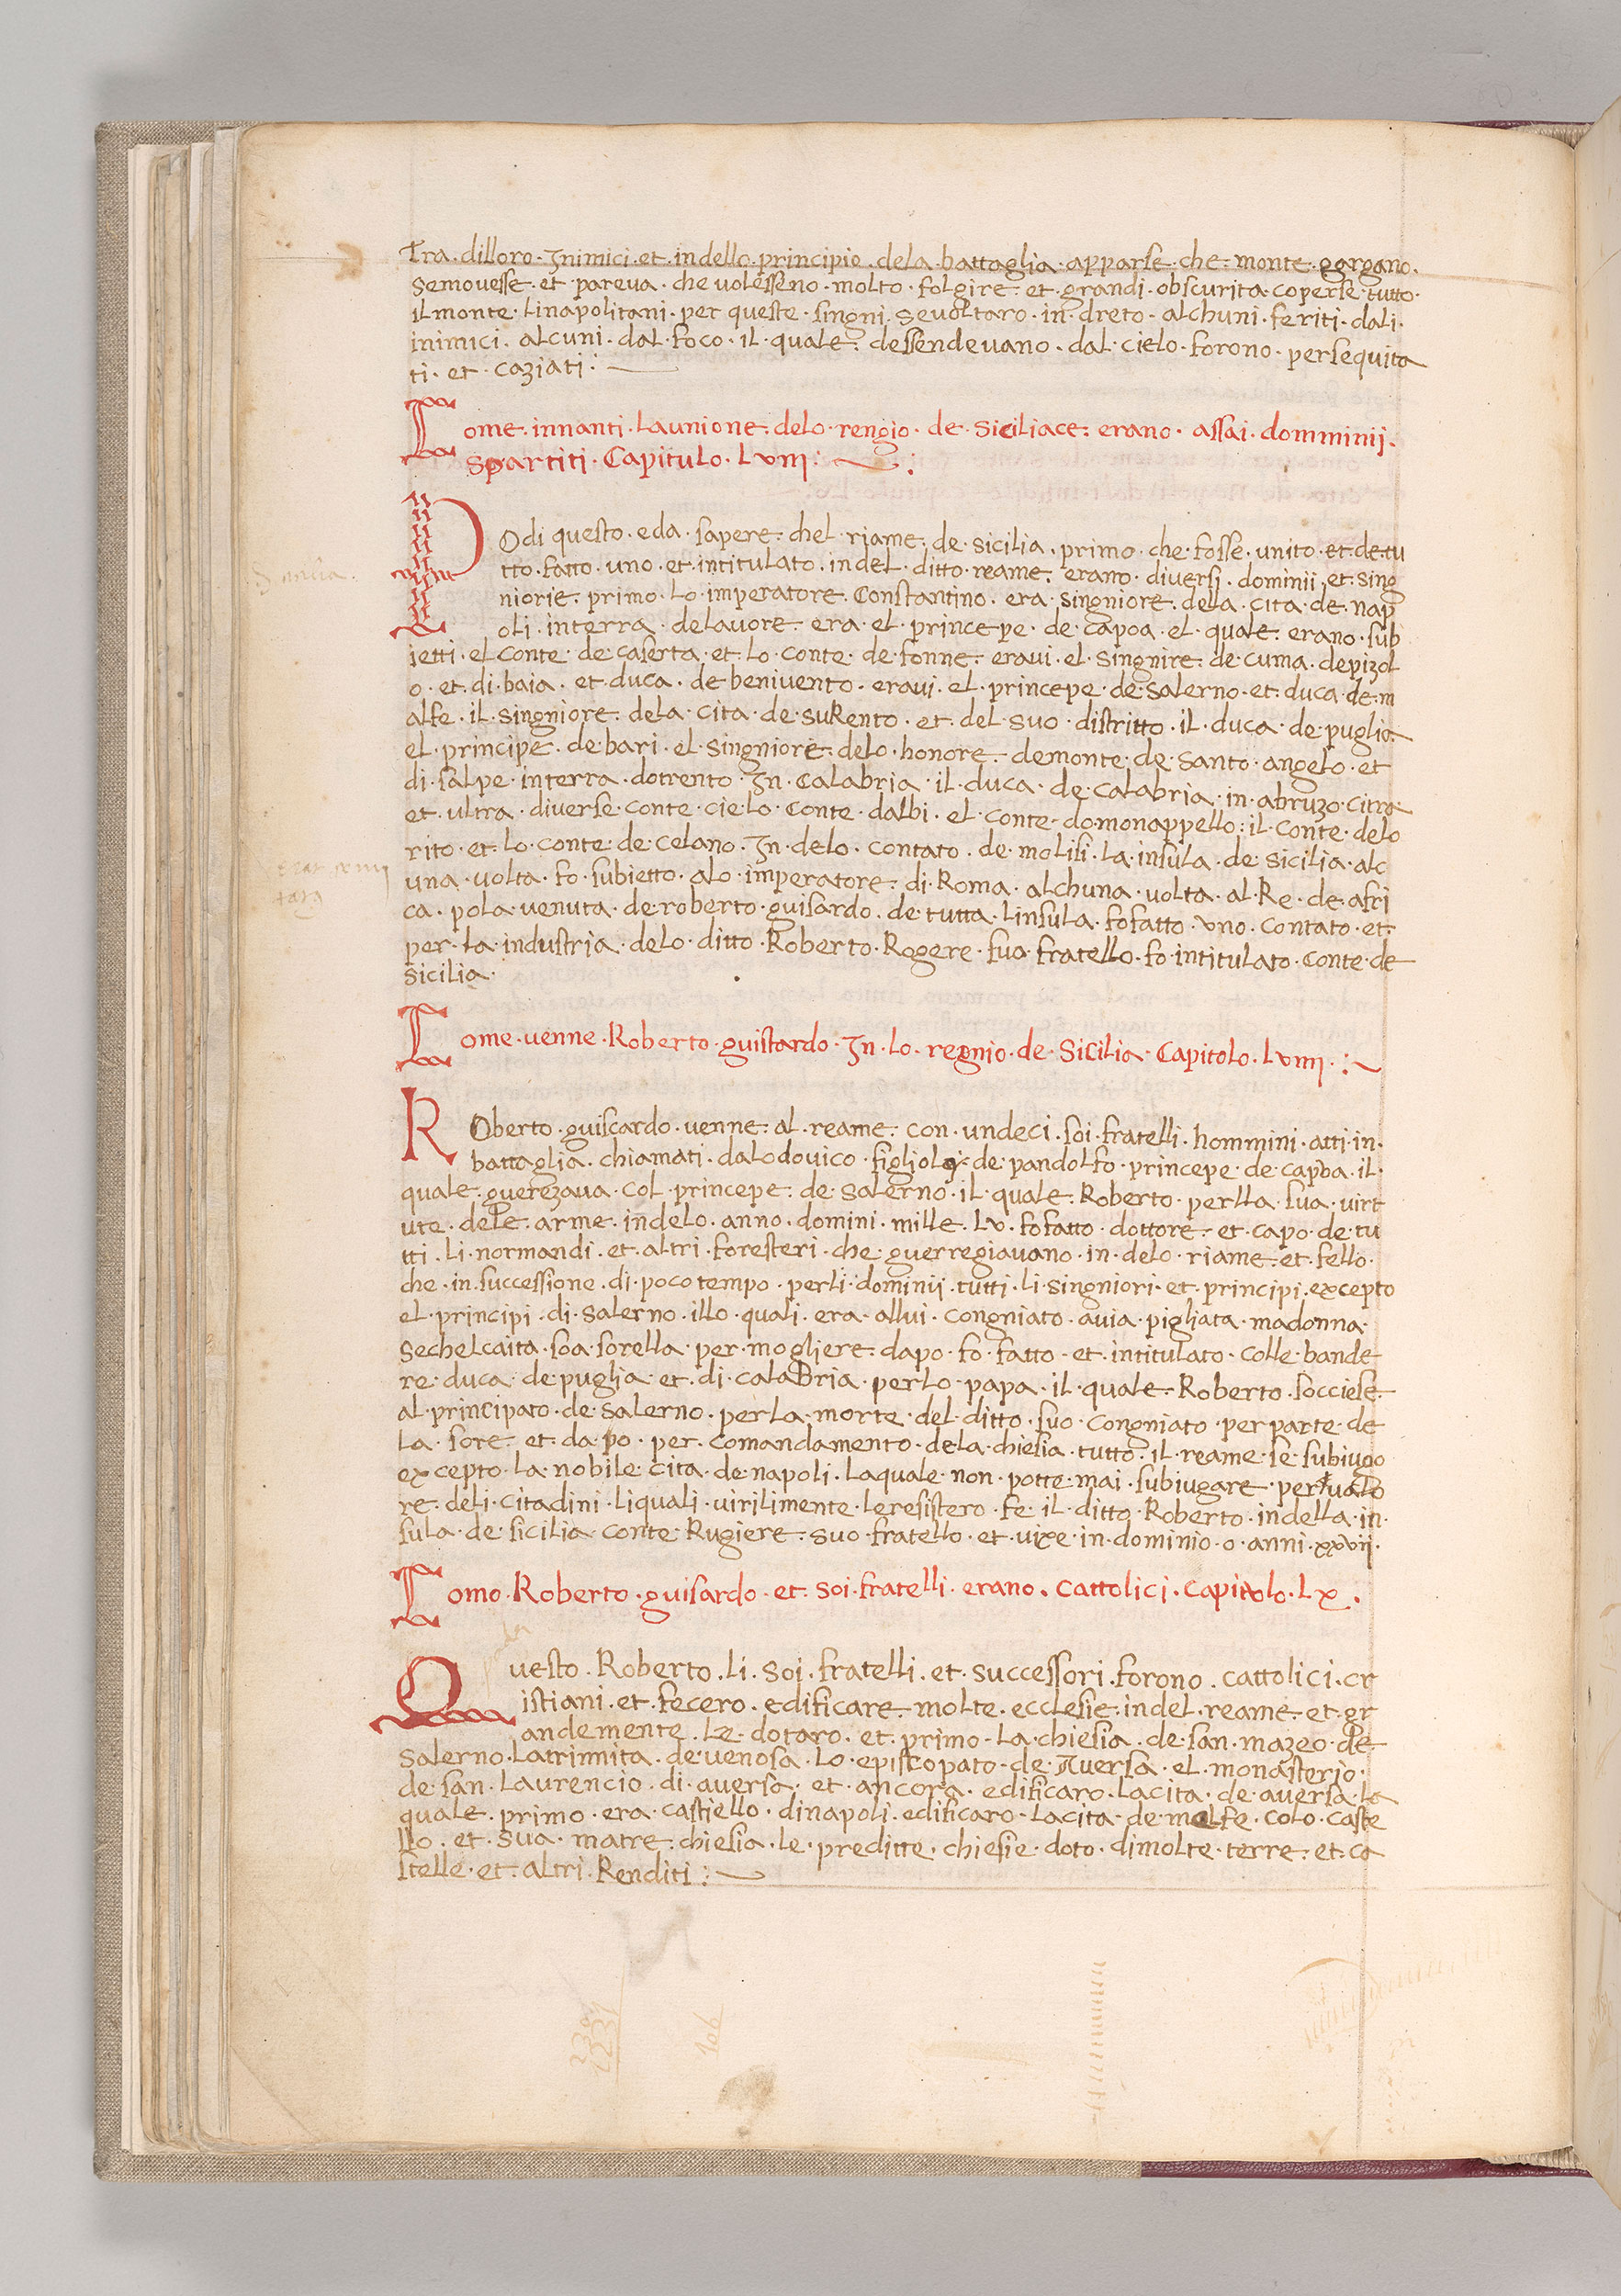 Tra · dilloro · Jnimici · et · in dello · principio · dela · battaglia · apparse · che · monte · gargano ·
semouesse · et · pareua · che volesseno · molto · folgire · et · grandi · obscurita · coperse · tutto ·
il monte · li napolitani · per queste · singni · se voltaro · in · dreto · alchuni · feriti · dali ·
inimici · alcuni · dal · foco · il · quale · dessendeuano · dal · cielo · forono · persequita
ti · et · caziati :
Come · innanti · la unione · delo · rengio · de · siciliace · erano · assai · domminij ·
spartiti · Capitulo · Lviij :
Podi questo · e da · sapere · chel · riame · de · sicilia · primo · che · fosse · unito · et · de · tu
tto · fatto · uno · et · intitulato · in del · ditto · reame · erano · diversi · dominii · et · sing
niorie · primo · lo · imperatore · Constantino · era · singniore · dela · cita · de · nap
oli · in terra · delauore · era · el · princepe · de · capoa · el · quale · erano · sub
ietti · el conte · de · caserta · et · lo · conte · de · fonne · eraui · el · singnire · de · cuma · de pizol
o · et · di · baia · et · duca · de benivento · eraui · el · princepe · de · salerno · et · duca · de · m
alfe · il · singniore · dela · cita · de · suRento · et · del · suo · distritto · il · duca · de · puglia
el · principe · de bari · el · singniore · delo · honore · de monte · de · santo · angelo · et
di · salpe · in terra · dotrento · Jn · Calabria · il · duca · de · calabria · in · abruzo · citra
et · ultra · diverse · conte · cie lo · conte · dalbi · el · conte · do monappello : il · conte · delo
rito · et · lo · conte · de · celano · Jn · delo · contato · de · molisi · la · insula · de · sicilia · alc
una · volta · fo · subietto · alo · imperatore · di · Roma · alchuna · volta · al · Re · de · afri
ca · po la · venuta · de roberto · guisardo · de · tutta · linsula · fo fatto · vno · contato · et ·
per · la · industria · delo · ditto · Roberto · Rogere · sua · fratello · fo · intitulato · conte · de
sicilia ·
Come · venne · Roberto · guistardo · Jn · lo · regnio · de · Sicilia · Capitolo · Lviiij · :
ROberto · guiscardo · venne · al · reame · con · undeci · soi · fratelli · hommini · atti · in ·
battaglia · chiamati · da lodovico · figliolo · de · pandolfo · princepe · de · capoa · il ·
quale · guerezaua · col · princepe · de · salerno · il · quale · Roberto · perlla · sua · virt
ute · dele · arme · in delo · anno · domini · mille · Lv · fo fatto · dottore · et · capo · de · tu
tti · li · normandi · et · altri · foresteri · che · guerregiauano · in · delo · riame · et · fello ·
che · in · successione · di · poco tempo · perli · dominii · tutti · li · singniori · et · principi · excepto
el · principi · di · salerno · illo · quali · era · allui · congniato · auia · pigliata · madonna ·
Sechelcaita · soa · sorella · per · mogliere · dapo · fo · fatto · et · intitulato · colle · bande
re · duca · de · puglia · et · di · calabria · perlo · papa · il · quale · Roberto · socciese
al · principato · de · salerno · per la · morte · del · ditto · suo · congniato · per parte · de
la · sore · et · da po · per · comandamento · dela · chiesia · tutto · il · reame · se · subiugo
excepto · la · nobile · cita · de · napoli · la quale · non · potte · mai · subiugare · per lo valo
re · deli · citadini · li quali · virilimente · le resistero · fe · il · ditto · Roberto · in della · in ·
sula · de · sicilia · conte · Rugiere · suo · fratello · et · vixe · in · dominio · o · anni · xxvii ·
Como · Roberto · guisardo · et · soi · fratelli · erano · Cattolici · Capitolo · Lx ·
Questo · Roberto · li · soi · fratelli · et · successori · forono · cattolici · cr
istiani · et · fecero · edificare · molte · ecclesie · in del · reame · et · gr
andemente · Le · dotaro · et · primo · la · chiesia · de · san · mazeo · de
Salerno · La trinnita · de · venosa · Lo · episcopato · de · Auersa · el · monasterio ·
de · san · Laurencio · di · auersa · et · ancora · edificaro · la cita · de · auersa · la
quale · primo · era · castiello · di napoli · edificaro · la cita · de · malfe · colo · caste
llo · et · sua · matre · chiesia · le · preditte · chiesie · doto · di molte · terre · et · ca
stelle · et · altri · Renditi :
106